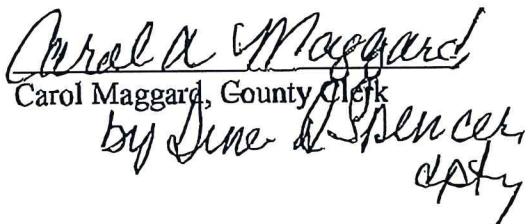 Carol A Maggard
Carol Maggard, County Clerk
by Gine D Spencer,
dpty